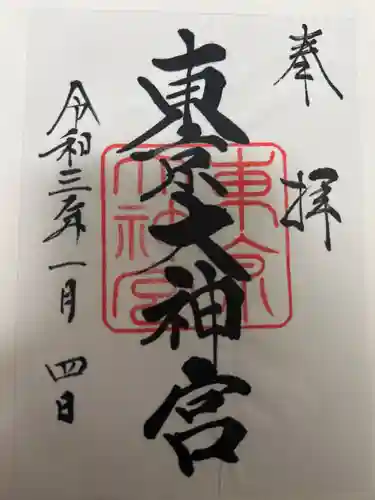 奉拝
東京大神宮
令和三年一月四日
東京大神宮